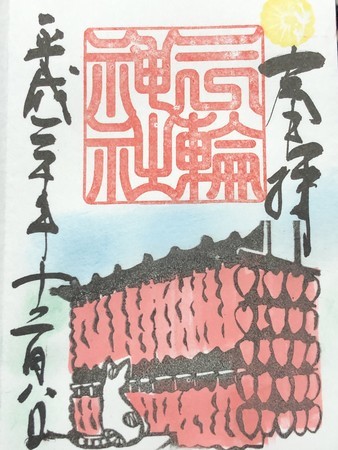 奉拝
三輪
神社
平成三十年十二月八日